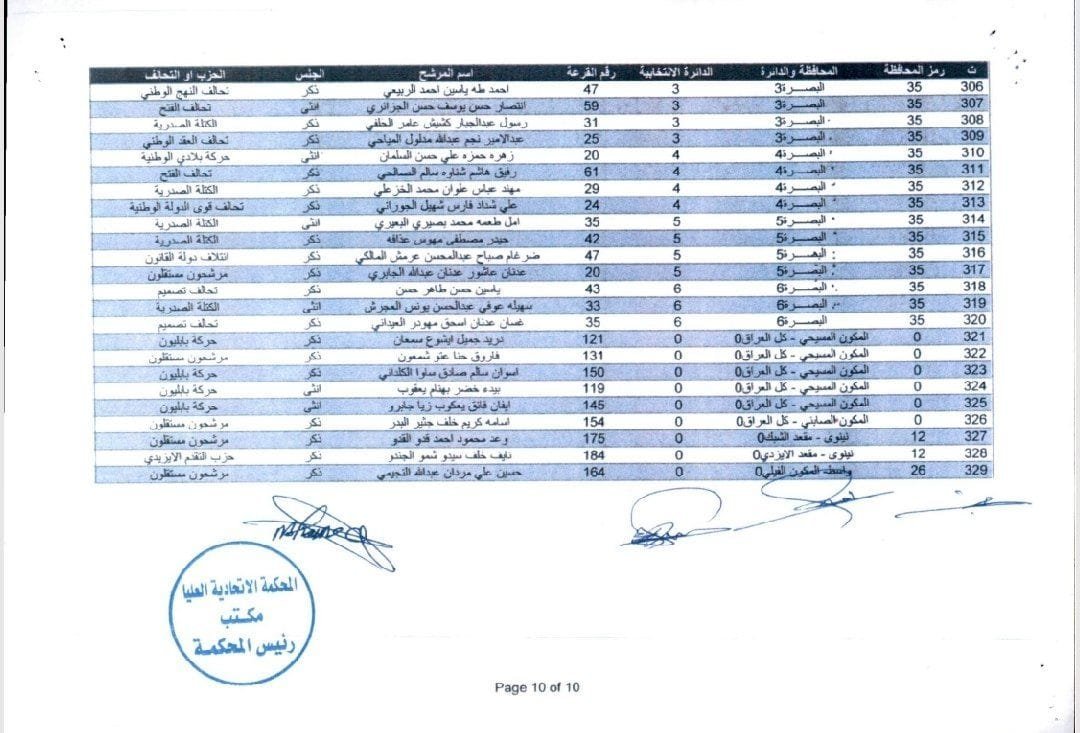 ت رمز المحافظة المحافظة والدائرة الدائرة الانتخابية رقم القرعة اسم المرشح الجنس الحزب او التحالف
306 35 البصرة3 3 47 احمد طه ياسين احمد الربيعي ذكر تحالف النهج الوطني
307 35 البصرة3 3 59 انتصار حسن يوسف حسن الجزائري انثى تحالف الفتح
308 35 البصرة3 3 31 رسول عبدالجبار كشيش عامر الحلفي ذكر الكتلة الصدرية
309 35 البصرة3 3 25 عبدالامير نجم عبدالله مدلول المياحي ذكر تحالف العقد الوطني
310 35 البصرة4 4 20 زهره حمزه علي حسن السلمان انثى حركة بلادي الوطنية
311 35 البصرة4 4 61 رفيق هاشم شناوه سالم الصالحي ذكر تحالف الفتح
312 35 البصرة4 4 29 مهند عباس علوان محمد الخزعلي ذكر الكتلة الصدرية
313 35 البصرة4 4 24 علي شداد فارس شهيل الجوراني ذكر تحالف قوى الدولة الوطنية
314 35 البصرة5 5 35 امل طعمه محمد بصيري البعيري انثى الكتلة الصدرية
315 35 البصرة5 5 42 حيدر مصطفى مهوس عذافه ذكر الكتلة الصدرية
316 35 البصرة5 5 47 ضرغام صباح عبدالمحسن عرمش المالكي ذكر ائتلاف دولة القانون
317 35 البصرة5 5 20 عدنان عاشور عدنان عبدالله الجابري ذكر مرشحون مستقلون
318 35 البصرة6 6 43 ياسين حسن طاهر حسن ذكر تحالف تصميم
319 35 البصرة6 6 33 سهيله عوفي عبدالحسن يونس العجرش انثى الكتلة الصدرية
320 35 البصرة6 6 35 غسان عدنان اسحق مهودر العيداني ذكر تحالف تصميم
321 0 المكون المسيحي - كل العراق0 0 121 دريد جميل ايشوع سمعان ذكر حركة بابليون
322 0 المكون المسيحي - كل العراق0 0 131 فاروق حنا عتو شمعون ذكر مرشحون مستقلون
323 0 المكون المسيحي - كل العراق0 0 150 اسوان سالم صادق ساوا الكلداني ذكر حركة بابليون
324 0 المكون المسيحي - كل العراق0 0 119 بيدء خضر بهنام يعقوب انثى حركة بابليون
325 0 المكون المسيحي - كل العراق0 0 145 ايفان فائق يعكوب زيا جابرو انثى حركة بابليون
326 0 المكون الصابئي - كل العراق0 0 154 اسامه كريم خلف جثير البدر ذكر مرشحون مستقلون
327 12 نينوى - مقعد الشبك0 0 175 وعد محمود احمد قدو القدو ذكر مرشحون مستقلون
328 12 نينوى - مقعد الايزدي0 0 184 نايف خلف سيدو شمو الجندو ذكر حزب التقدم الايزيدي
329 26 واسط- المكون الفيلي0 0 164 حسين علي مردان عبدالله التجيمي ذكر مرشحون مستقلون
المحكمة الاتحادية العليا
مكتب
رئيس المحكمة
Page 10 of 10